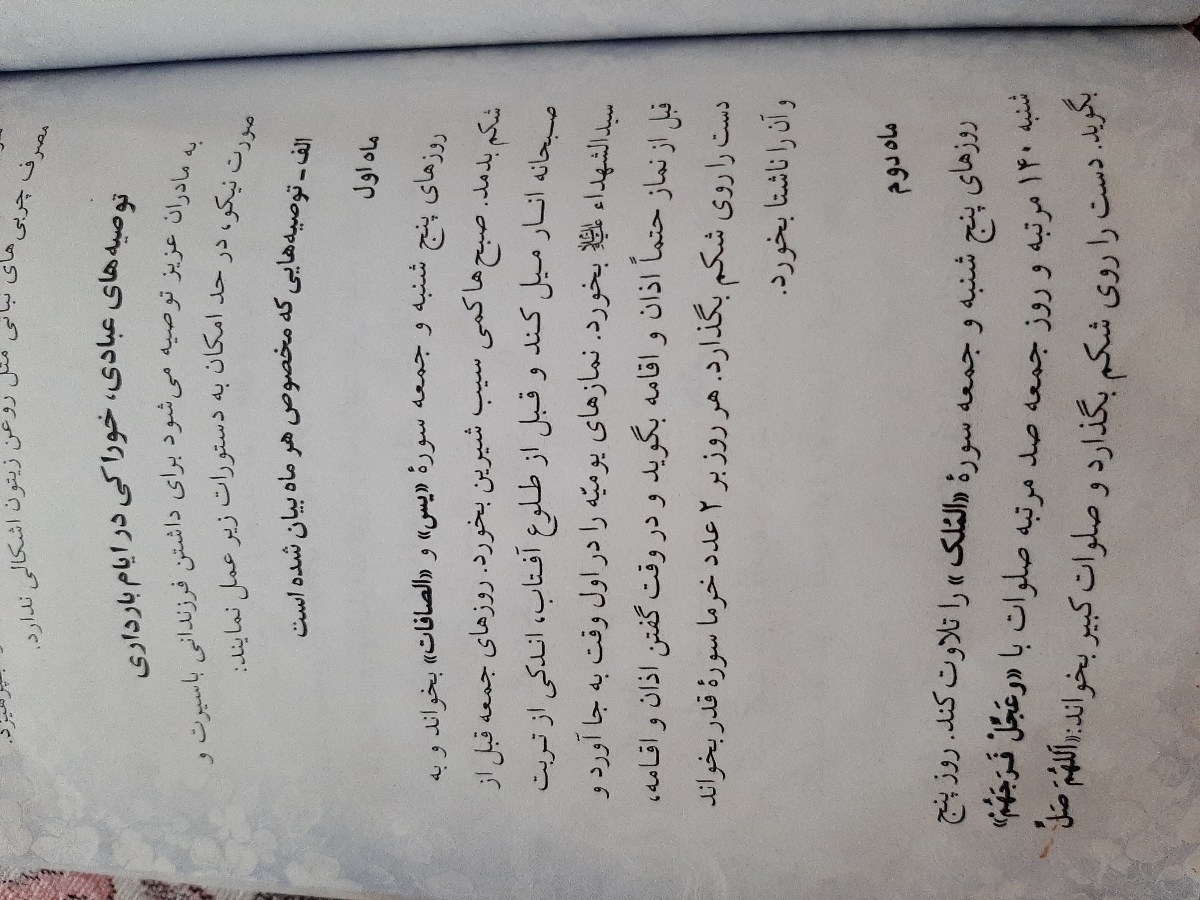 مصرف چربی های نباتی مثل روغن زیتون اشکالی ندارد.
توصیه های عبادی، خوراکی در ایام بارداری
به مادران عزیز توصیه می شود برای داشتن فرزندانی باسیرت و
صورت نیکو، در حد امکان به دستورات زیر عمل نمایند:
الف - توصیه‌هایی که مخصوص هر ماه بیان شده است
ماه اول
روزهای پنج شنبه و جمعه سورۀ «یس» و «الصافات» بخواند و به
شکم بدمد. صبح ها کمی سیب شیرین بخورد. روزهای جمعه قبل از
صبحانه انار میل کند و قبل از طلوع آفتاب، اندکی از تربت
سیدالشهداء علیه‌السلام بخورد. نمازهای یومیّه را در اول وقت به جا آورد و
قبل از نماز حتماً اذان و اقامه بگوید و در وقت گفتن اذان و اقامه،
دست را روی شکم بگذارد. هر روز بر ۲ عدد خرما سورۀ قدر بخواند
و آن را ناشتا بخورد.
ماه دوم
روزهای پنج شنبه و جمعه سورۀ «المُلک» را تلاوت کند. روز پنج
شنبه ۱۴۰ مرتبه و روز جمعه صد مرتبه صلوات با «وعَجِّلْ فَرَجَهُمْ»
بگوید. دست را روی شکم بگذارد و صلوات کبیر بخواند:«اَللهُمَ صَلِّ